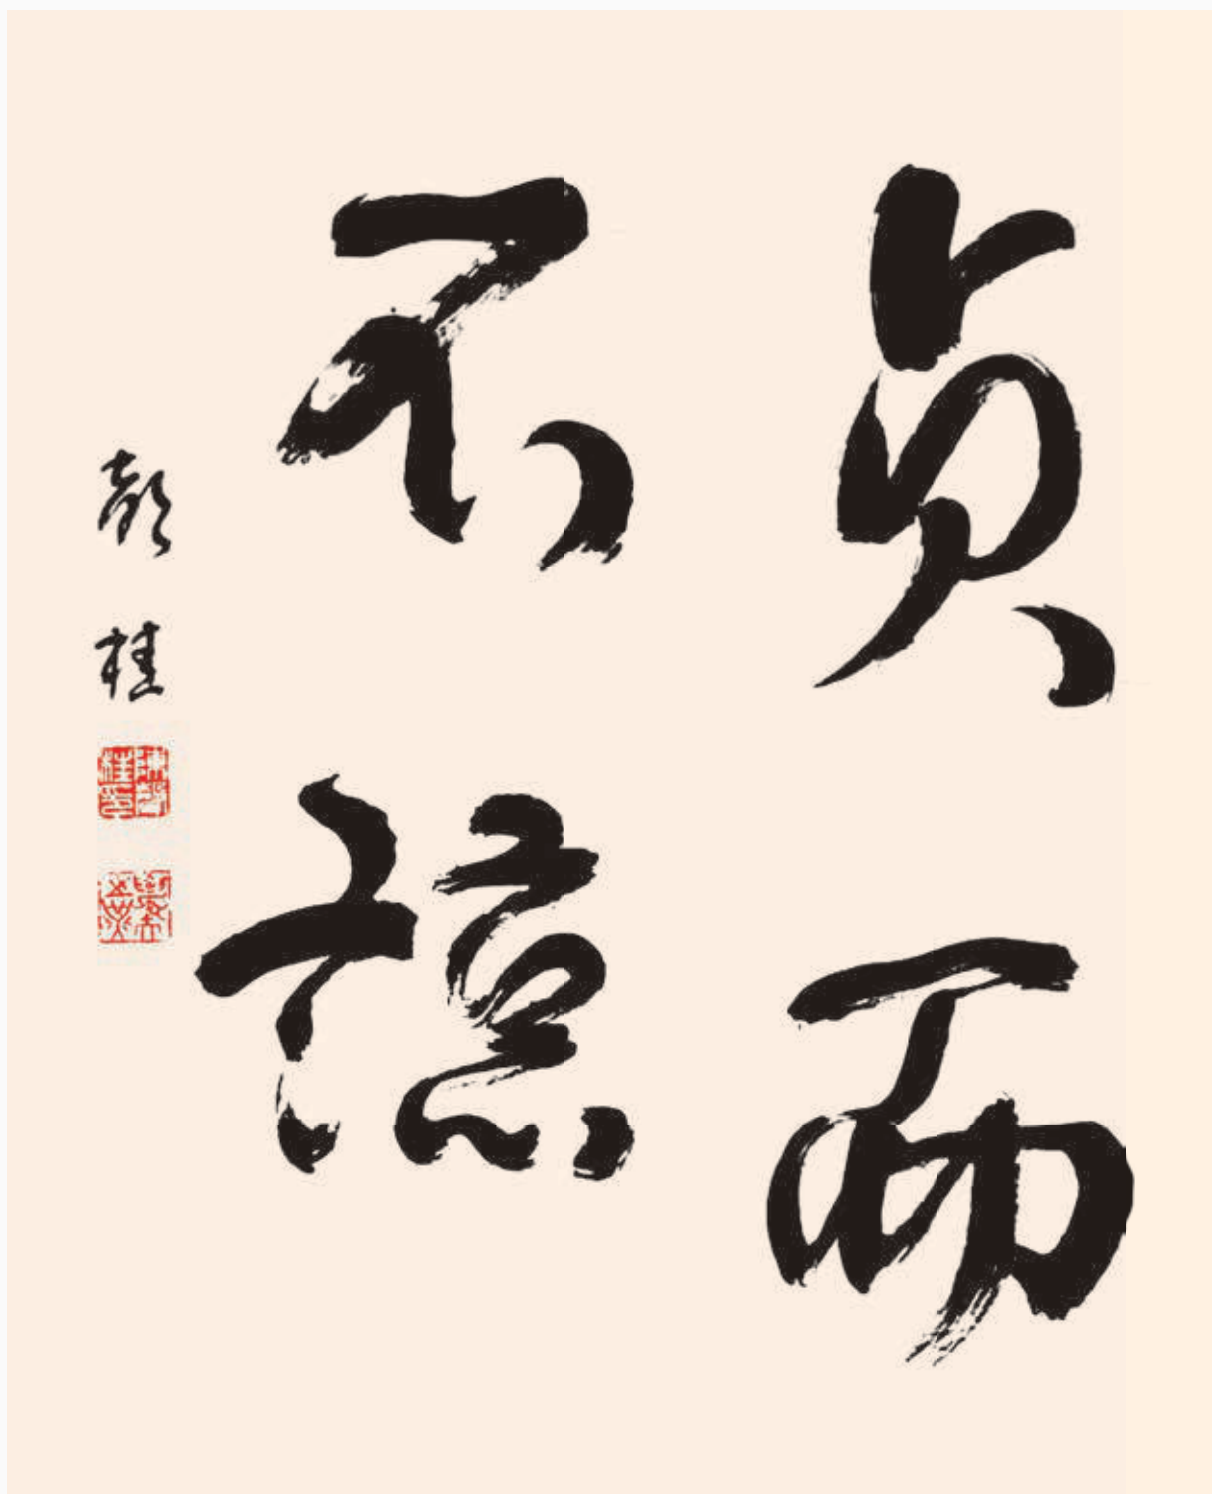 貞而
不諒
彭桂